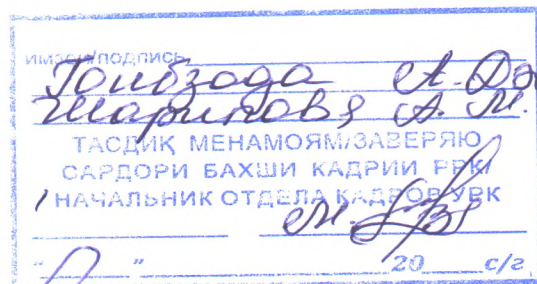 имзои/подпись
Гоибзода А. До
Шарипова А. М.
ТАСДИҚ МЕНАМОЯМ/ЗАВЕРЯЮ
САРДОРИ БАХШИ КАДРИИ РРК/
НАЧАЛЬНИК ОТДЕЛА КАДРОВ УРК
"     "     20     с/г